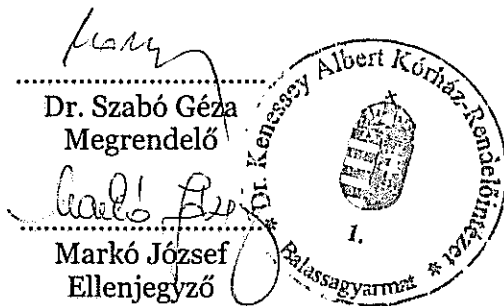 Dr. Szabó Géza
Megrendelő
Markó József
Ellenjegyző
Dr. Kenessey Albert Kórház-Rendelőintézet
1.
* Balassagyarmat *